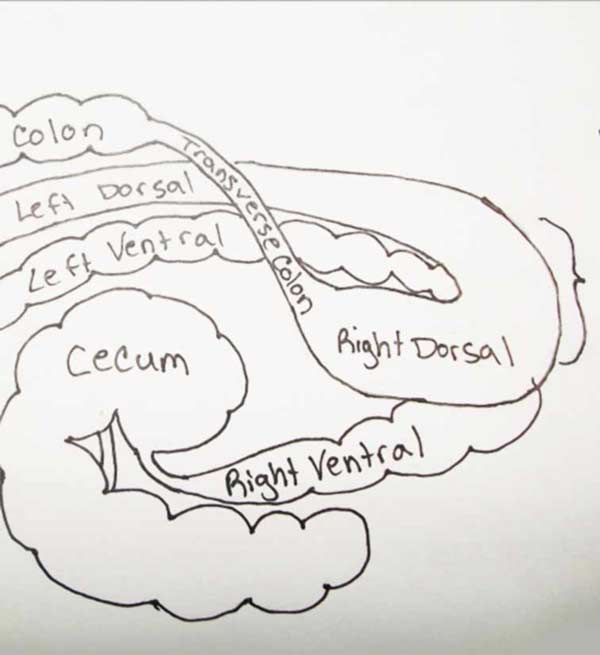 Colon
Transverse Colon
Left Dorsal
Left Ventral
Right Dorsal
Cecum
Right Ventral